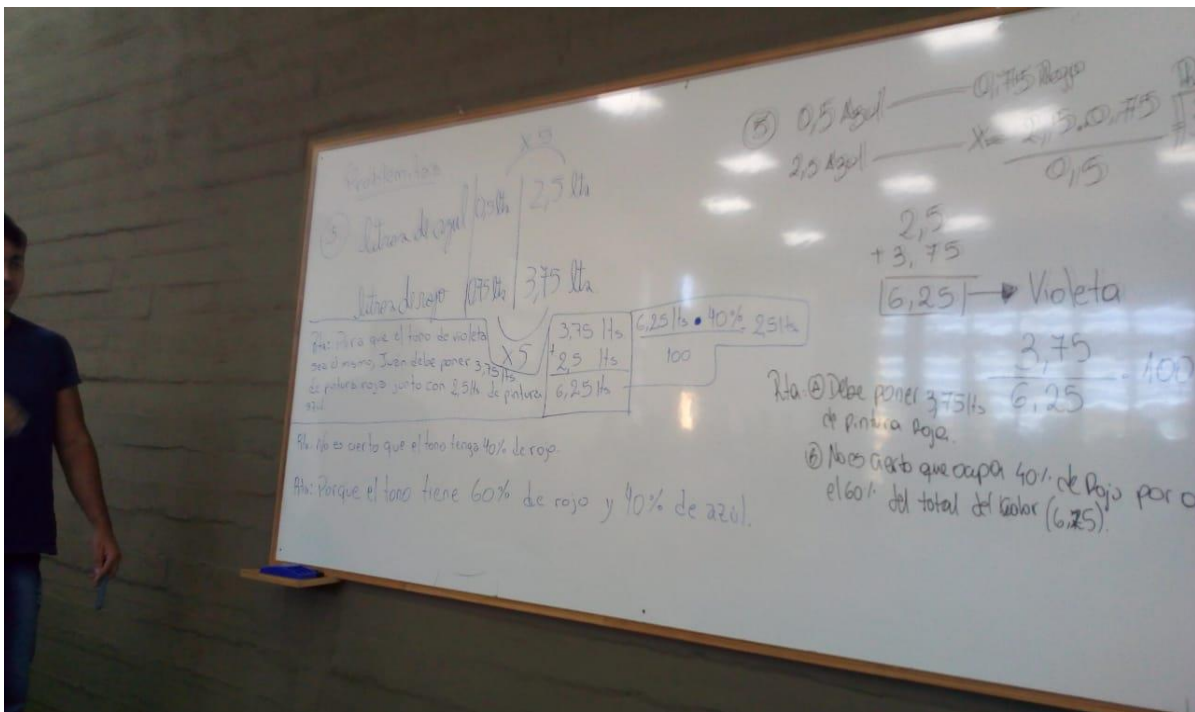 x 5
Problemitas
③ litros de azul | 0,5 lts | 2,5 lts
litros de rojo | 0,75 lts | 3,75 lts
x 5
Rta: Para que el tono de violeta
sea el mismo, Juan debe poner 3,75 lts
de pintura roja junto con 2,5 lts de pintura
azul
3,75 lts
+ 2,5 lts
6,25 lts
6,25 lts • 40% = 2,5 lts
100
Rta: No es cierto que el tono tenga 40% de rojo.
Rta: Porque el tono tiene 60% de rojo y 40% de azul.
0,5 Azul — 0,75 Rojo
2,5 Azul — X = 2,5 . 0,75
0,5
2,5
+ 3,75
6,25 → Violeta
3,75
6,25
. 100
Rta: ⓐ Debe poner 3,75 lts
de pintura Roja.
ⓑ No es cierto que ocupa 40% de Rojo por
el 60% del total del color (6,25).